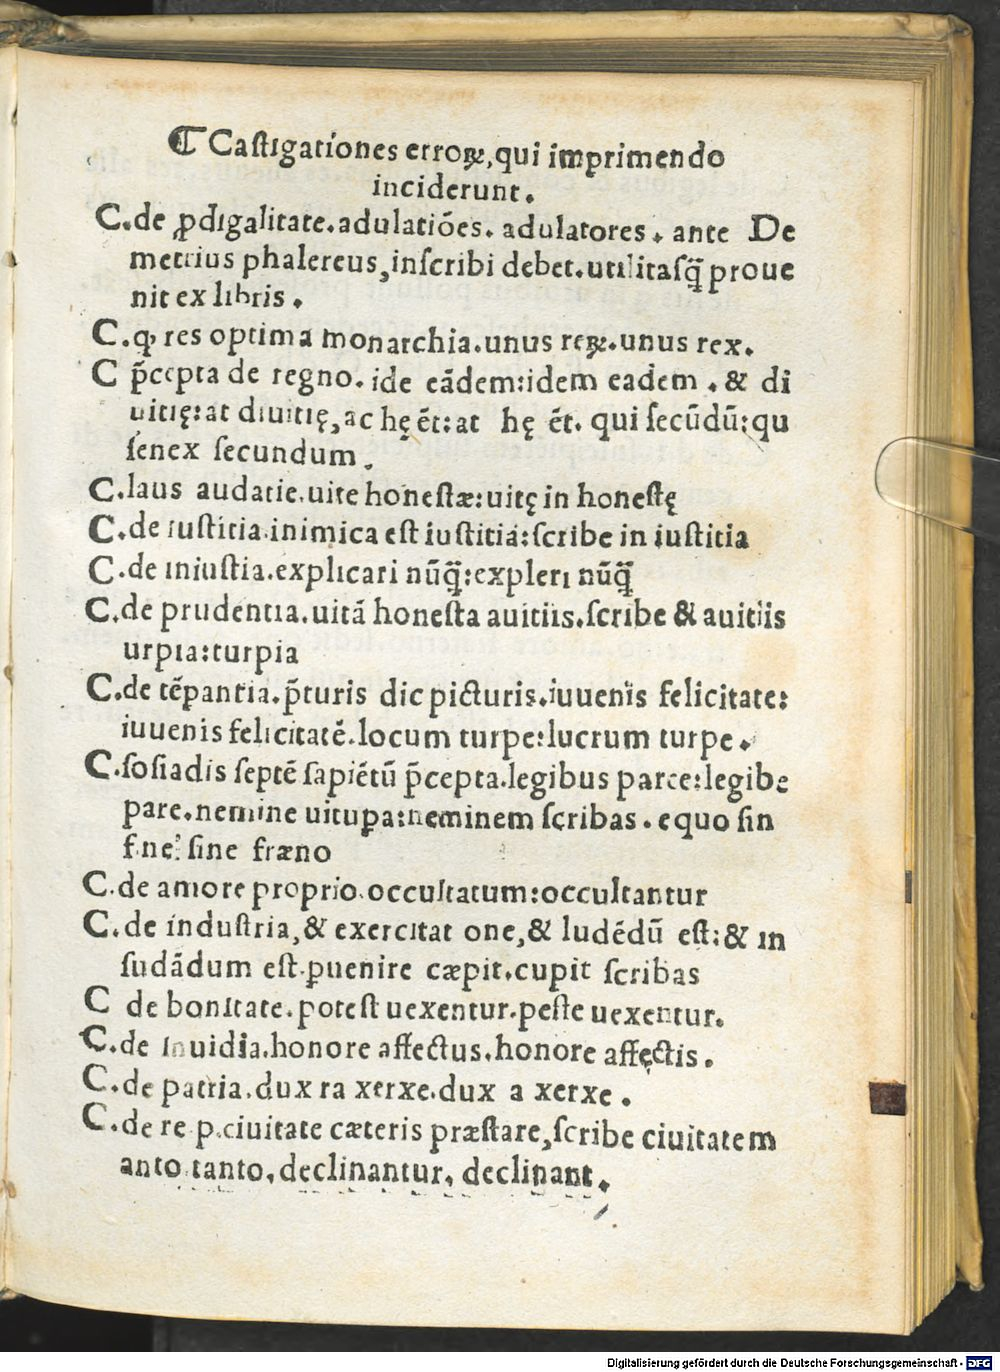 ¶ Castigationes erroꝝ, qui imprimendo
inciderunt.
C. de ꝓdigalitate. adulatiões. adulatores. ante De
metrius phalereus, inscribi debet. utilitasq̃ proue
nit ex libris.
C. ꝙ res optima monarchia. unus reꝝ. unus rex.
C p̃cepta de regno. ide eãdem: idem eadem. & di
uitię: at diuitię, ac hę ẽt: at hę ẽt. qui secũdũ: qu
senex secundum.
C. laus audatie. uite honestæ: uitę in honestę
C. de iustitia. inimica est iustitia: scribe in iustitia
C. de iniustia. explicari nũq̃: expleri nũq̃
C. de prudentia. uitã honesta auitiis. scribe & auitiis
urpia: turpia
C. de tẽpantia. p̃turis dic picturis. iuuenis felicitate:
iuuenis felicitatẽ. locum turpe: lucrum turpe.
C. sosiadis septẽ sapiẽtũ p̃cepta. legibus parce: legibe
pare. nemine uitupa: neminem scribas. equo sin
f.ne: sine fræno
C. de amore proprio. occultatum: occultantur
C. de industria, & exercitat one, & ludẽdũ est: & in
sudãdum est. ꝑuenire cæpit. cupit scribas
C de bonitate. potest uexentur. peste uexentur.
C. de inuidia. honore affectus. honore affęctis.
C. de patria. dux ra xerxe. dux a xerxe.
C. de re p. ciuitate cæteris præstare, scribe ciuitatem
anto tanto, declinantur, declinant.
Digitalisierung gefördert durch die Deutsche Forschungsgemeinschaft - DFG